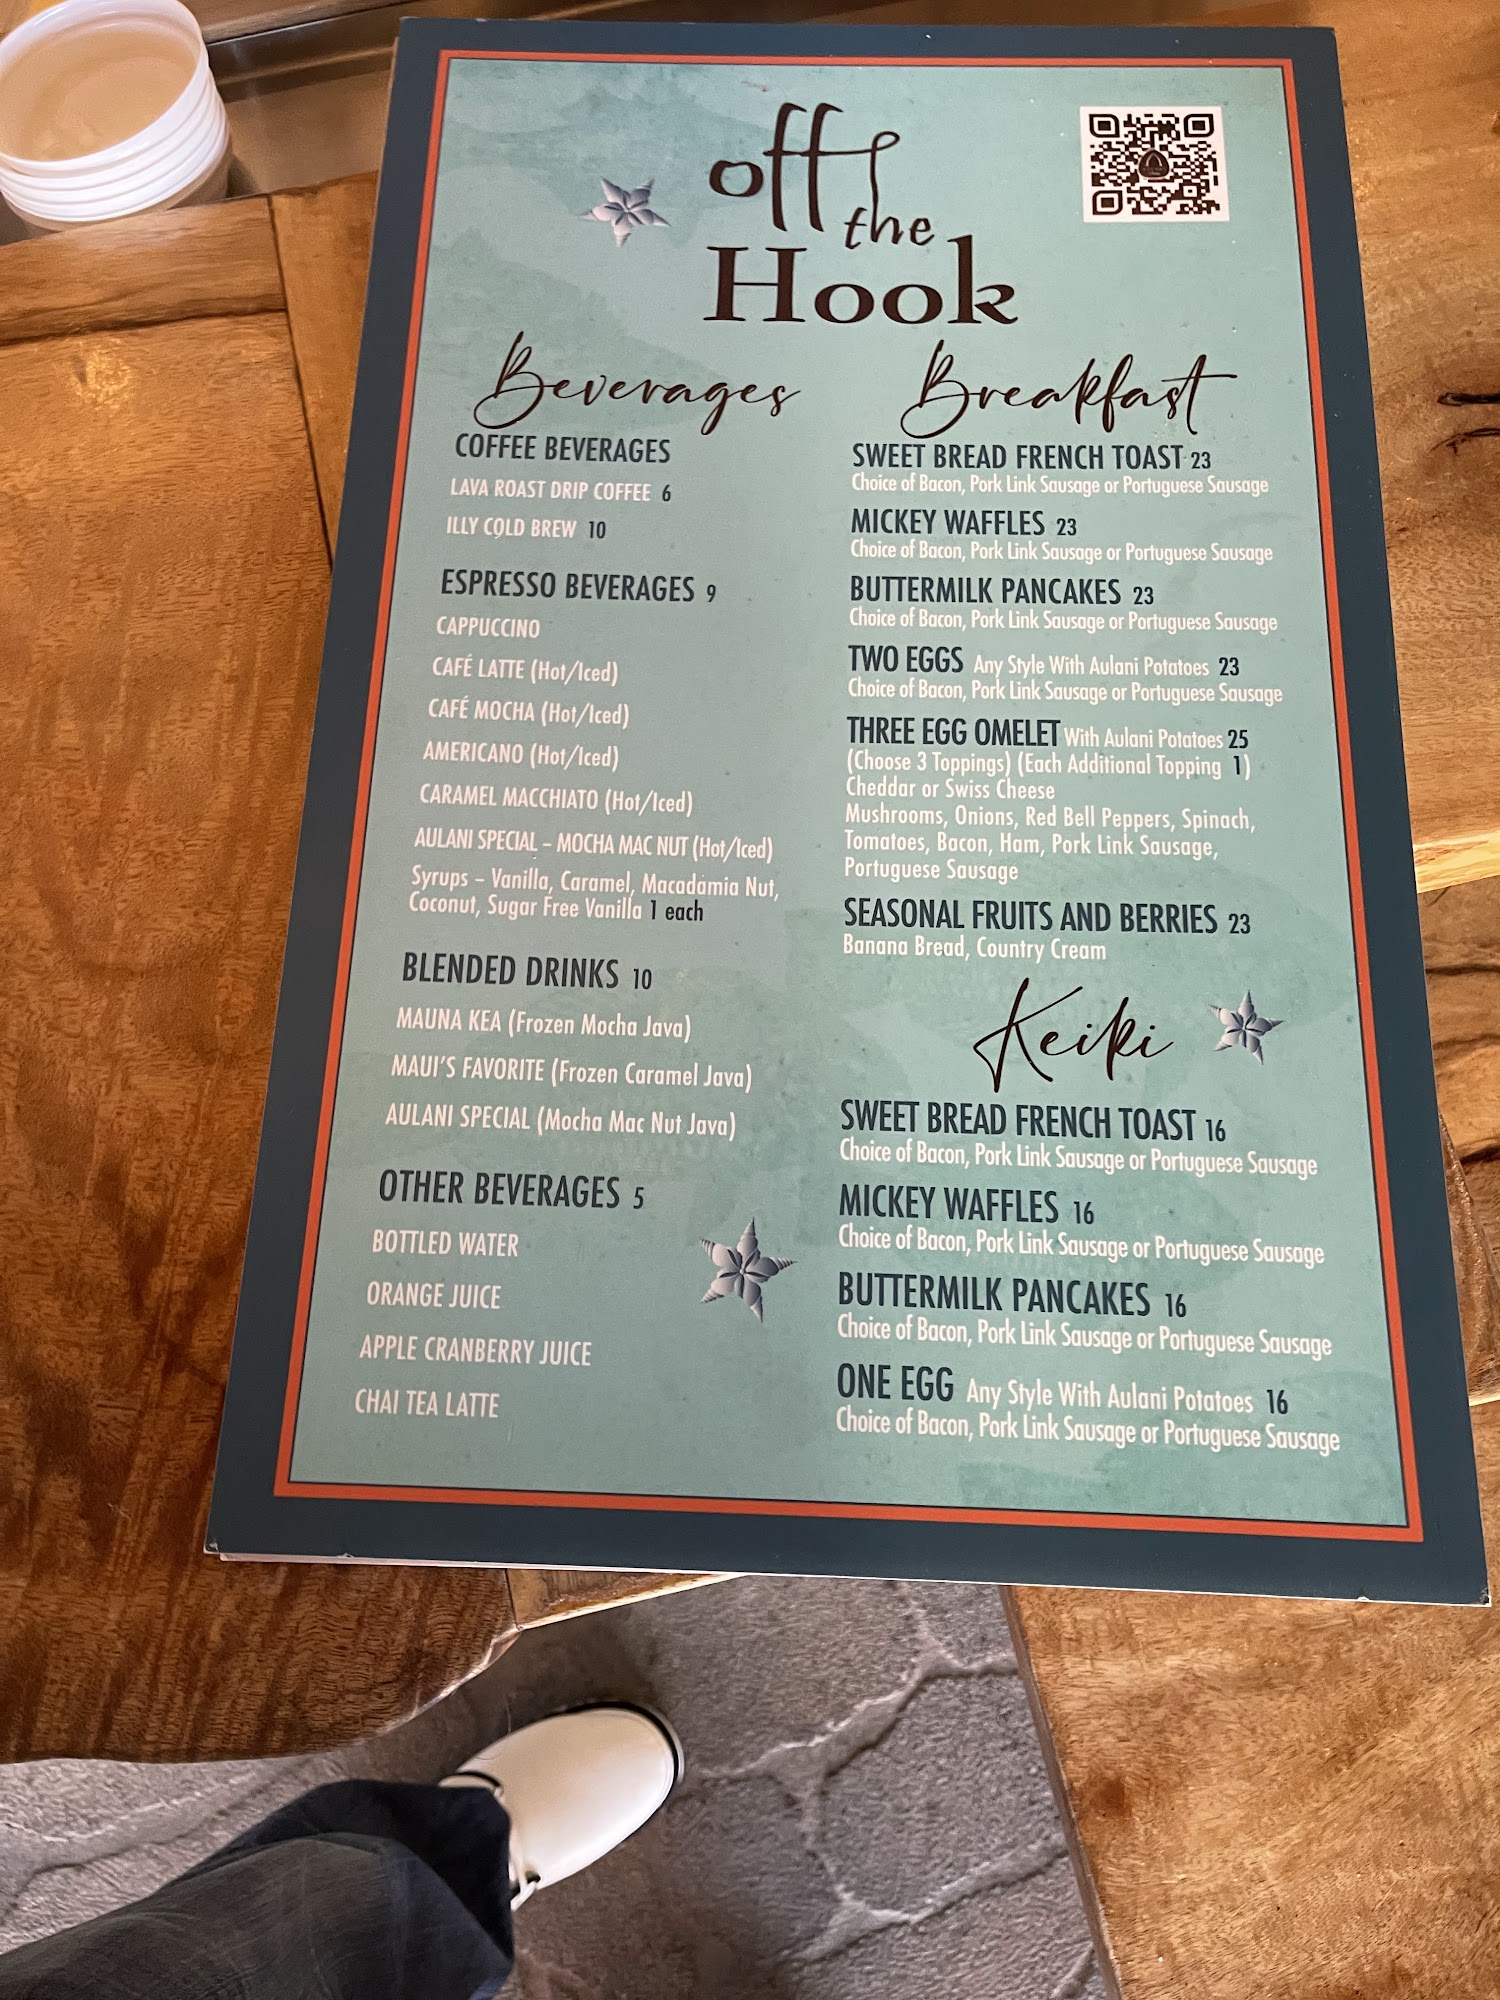 off the
Hook
Beverages
COFFEE BEVERAGES
LAVA ROAST DRIP COFFEE 6
ILLY COLD BREW 10
ESPRESSO BEVERAGES 9
CAPPUCCINO
CAFÉ LATTE (Hot/Iced)
CAFÉ MOCHA (Hot/Iced)
AMERICANO (Hot/Iced)
CARAMEL MACCHIATO (Hot/Iced)
AULANI SPECIAL – MOCHA MAC NUT (Hot/Iced)
Syrups – Vanilla, Caramel, Macadamia Nut,
Coconut, Sugar Free Vanilla 1 each
BLENDED DRINKS 10
MAUNA KEA (Frozen Mocha Java)
MAUI'S FAVORITE (Frozen Caramel Java)
AULANI SPECIAL (Mocha Mac Nut Java)
OTHER BEVERAGES 5
BOTTLED WATER
ORANGE JUICE
APPLE CRANBERRY JUICE
CHAI TEA LATTE
Breakfast
SWEET BREAD FRENCH TOAST 23
Choice of Bacon, Pork Link Sausage or Portuguese Sausage
MICKEY WAFFLES 23
Choice of Bacon, Pork Link Sausage or Portuguese Sausage
BUTTERMILK PANCAKES 23
Choice of Bacon, Pork Link Sausage or Portuguese Sausage
TWO EGGS Any Style With Aulani Potatoes 23
Choice of Bacon, Pork Link Sausage or Portuguese Sausage
THREE EGG OMELET With Aulani Potatoes 25
(Choose 3 Toppings) (Each Additional Topping 1)
Cheddar or Swiss Cheese
Mushrooms, Onions, Red Bell Peppers, Spinach,
Tomatoes, Bacon, Ham, Pork Link Sausage,
Portuguese Sausage
SEASONAL FRUITS AND BERRIES 23
Banana Bread, Country Cream
Keiki
SWEET BREAD FRENCH TOAST 16
Choice of Bacon, Pork Link Sausage or Portuguese Sausage
MICKEY WAFFLES 16
Choice of Bacon, Pork Link Sausage or Portuguese Sausage
BUTTERMILK PANCAKES 16
Choice of Bacon, Pork Link Sausage or Portuguese Sausage
ONE EGG Any Style With Aulani Potatoes 16
Choice of Bacon, Pork Link Sausage or Portuguese Sausage